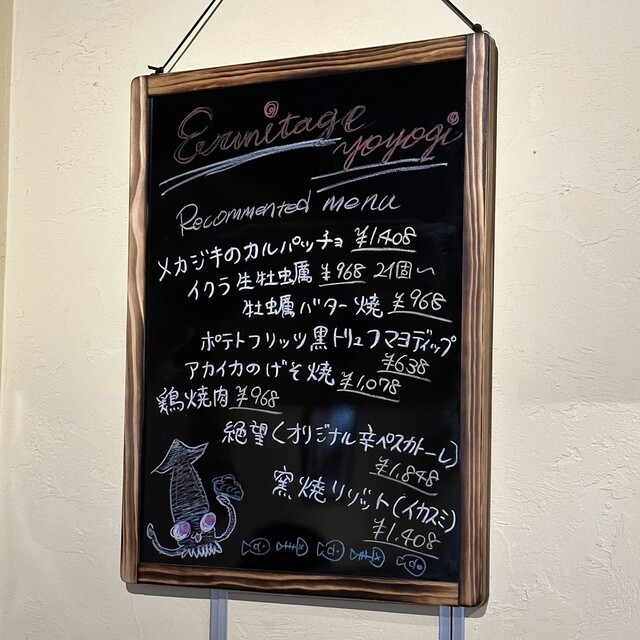 Ermitage
yoyogi
Recommented menu
メカジキのカルパッチョ ¥1,408
イクラ生牡蠣 ¥968 2個〜
牡蠣バター焼 ¥968
ポテトフリッツ黒トリュフマヨディップ
¥638
アカイカのげそ焼 ¥1,078
鶏焼肉 ¥968
絶望(オリジナル辛ペスカトーレ)
¥1,848
窯焼リゾット(イカスミ)
¥1,408